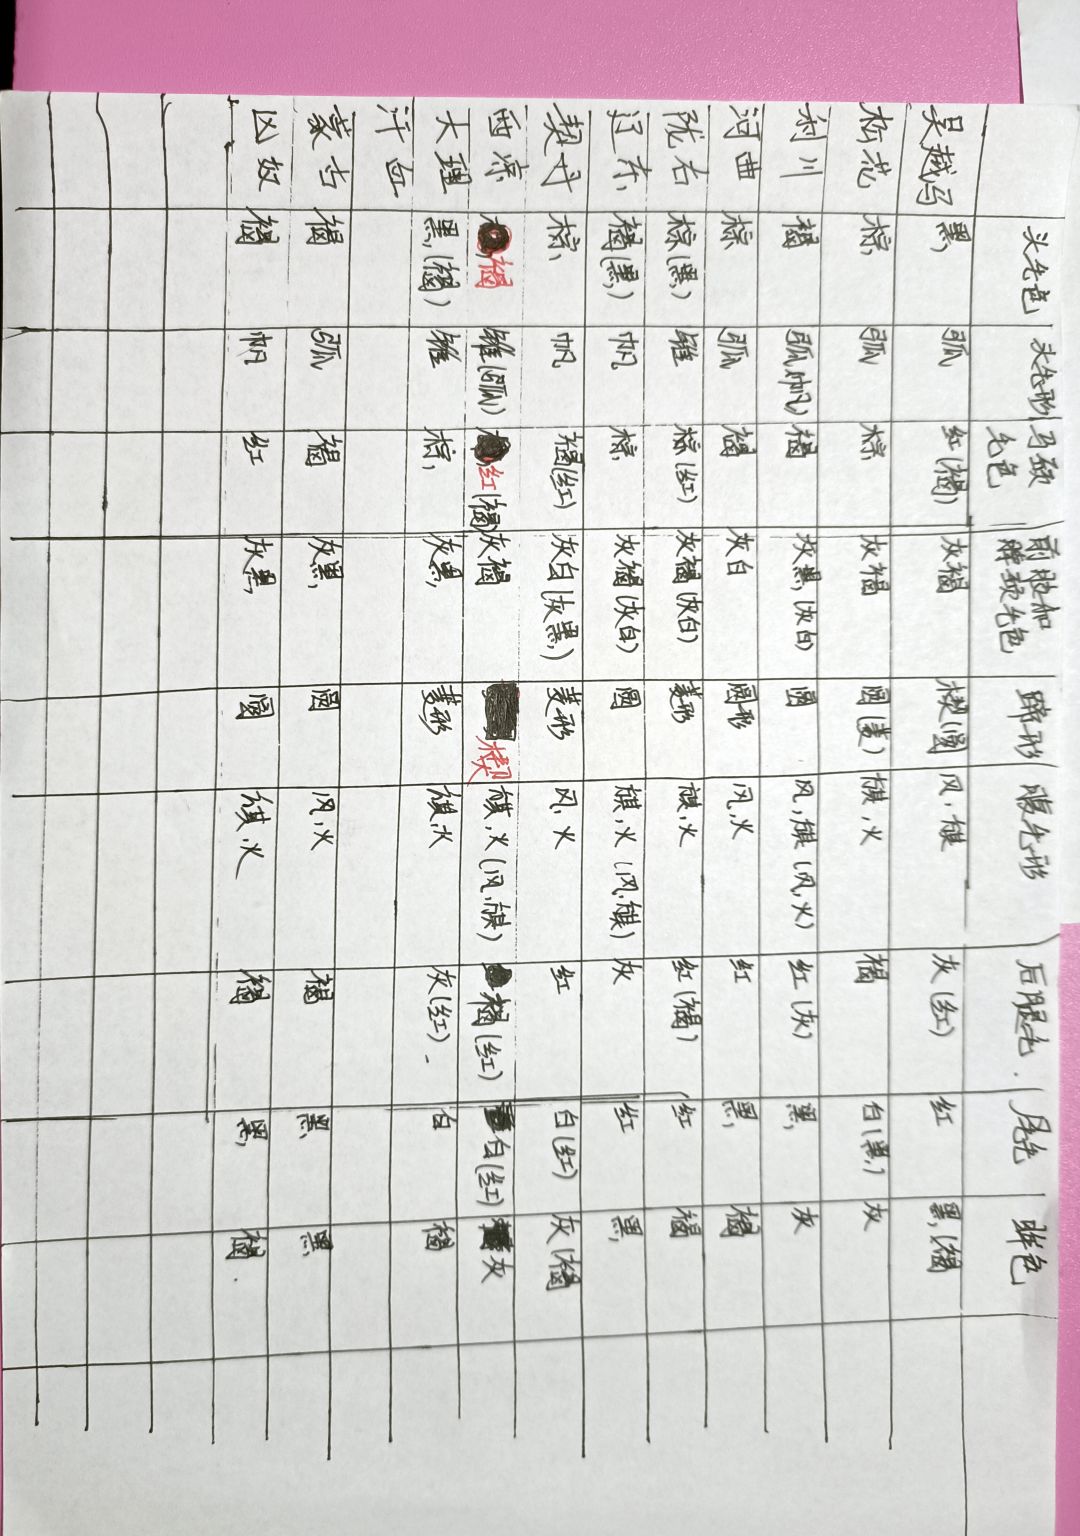 头毛色 头毛形 马颈毛色 前肢和腰颈毛色 蹄形 腹毛形 后腿毛. 尾毛 眼色
吴越马 黑, 弧 红(褐) 灰褐 楔(圆) 风,旗 灰(红) 红 黑,(褐
松芯 棕, 弧 棕, 灰褐 圆(菱) 旗,火 褐 白(黑,) 灰
利川 褐 弧(帆) 褐 灰黑,(灰白) 圆 风,旗(风,火) 红(灰) 黑, 灰
河曲 棕 弧 褐 灰白 圆形 风,火 红 黑, 褐
陇右 棕(黑) 锥 棕(红) 灰褐(灰白) 菱形 旗,火 红(褐) 红 褐
辽东 褐(黑,) 帆 棕, 灰褐(灰白) 圆 旗,火(风,旗) 灰 红 黑,
契丹 棕, 帆 褐(红) 灰白(灰黑,) 菱形 风,火 红 白(红) 灰(褐
西凉 褐 锥(弧) 红(褐) 灰褐 楔 旗,火(风,旗) 褐(红) 白(红) 灰
大理 黑,(褐) 锥 棕, 灰黑, 菱形 旗,火 灰(红). 白 褐
汗血
蒙古 褐 弧 褐 灰黑, 圆 风,火 褐 黑, 黑,
凶奴 褐 帆 红 灰黑, 圆 旗,火 褐 黑, 褐.